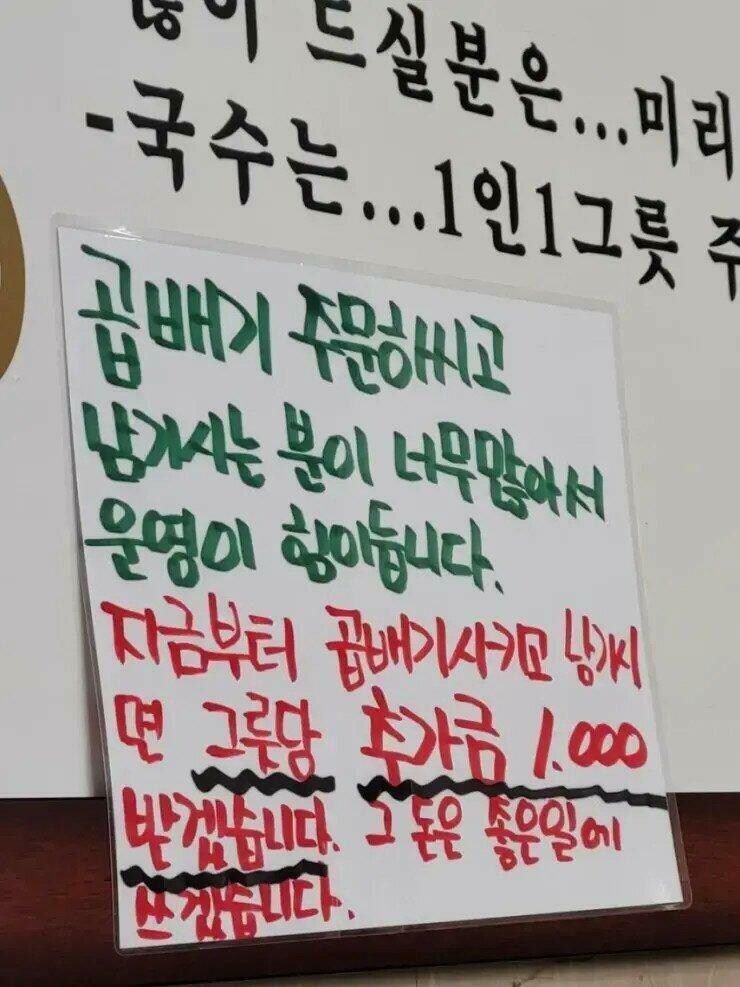 많이 드실분은...미리
-국수는...1인1그릇 주
곱배기 주문하씨고
남기시는 분이 너무많아서
운영이 힘이듭니다.
지금부터 곱배기시키고 남기시
면 그릇당 추가금 1.000
받겠습니다. 그 돈은 좋은일에
쓰겠습니다.